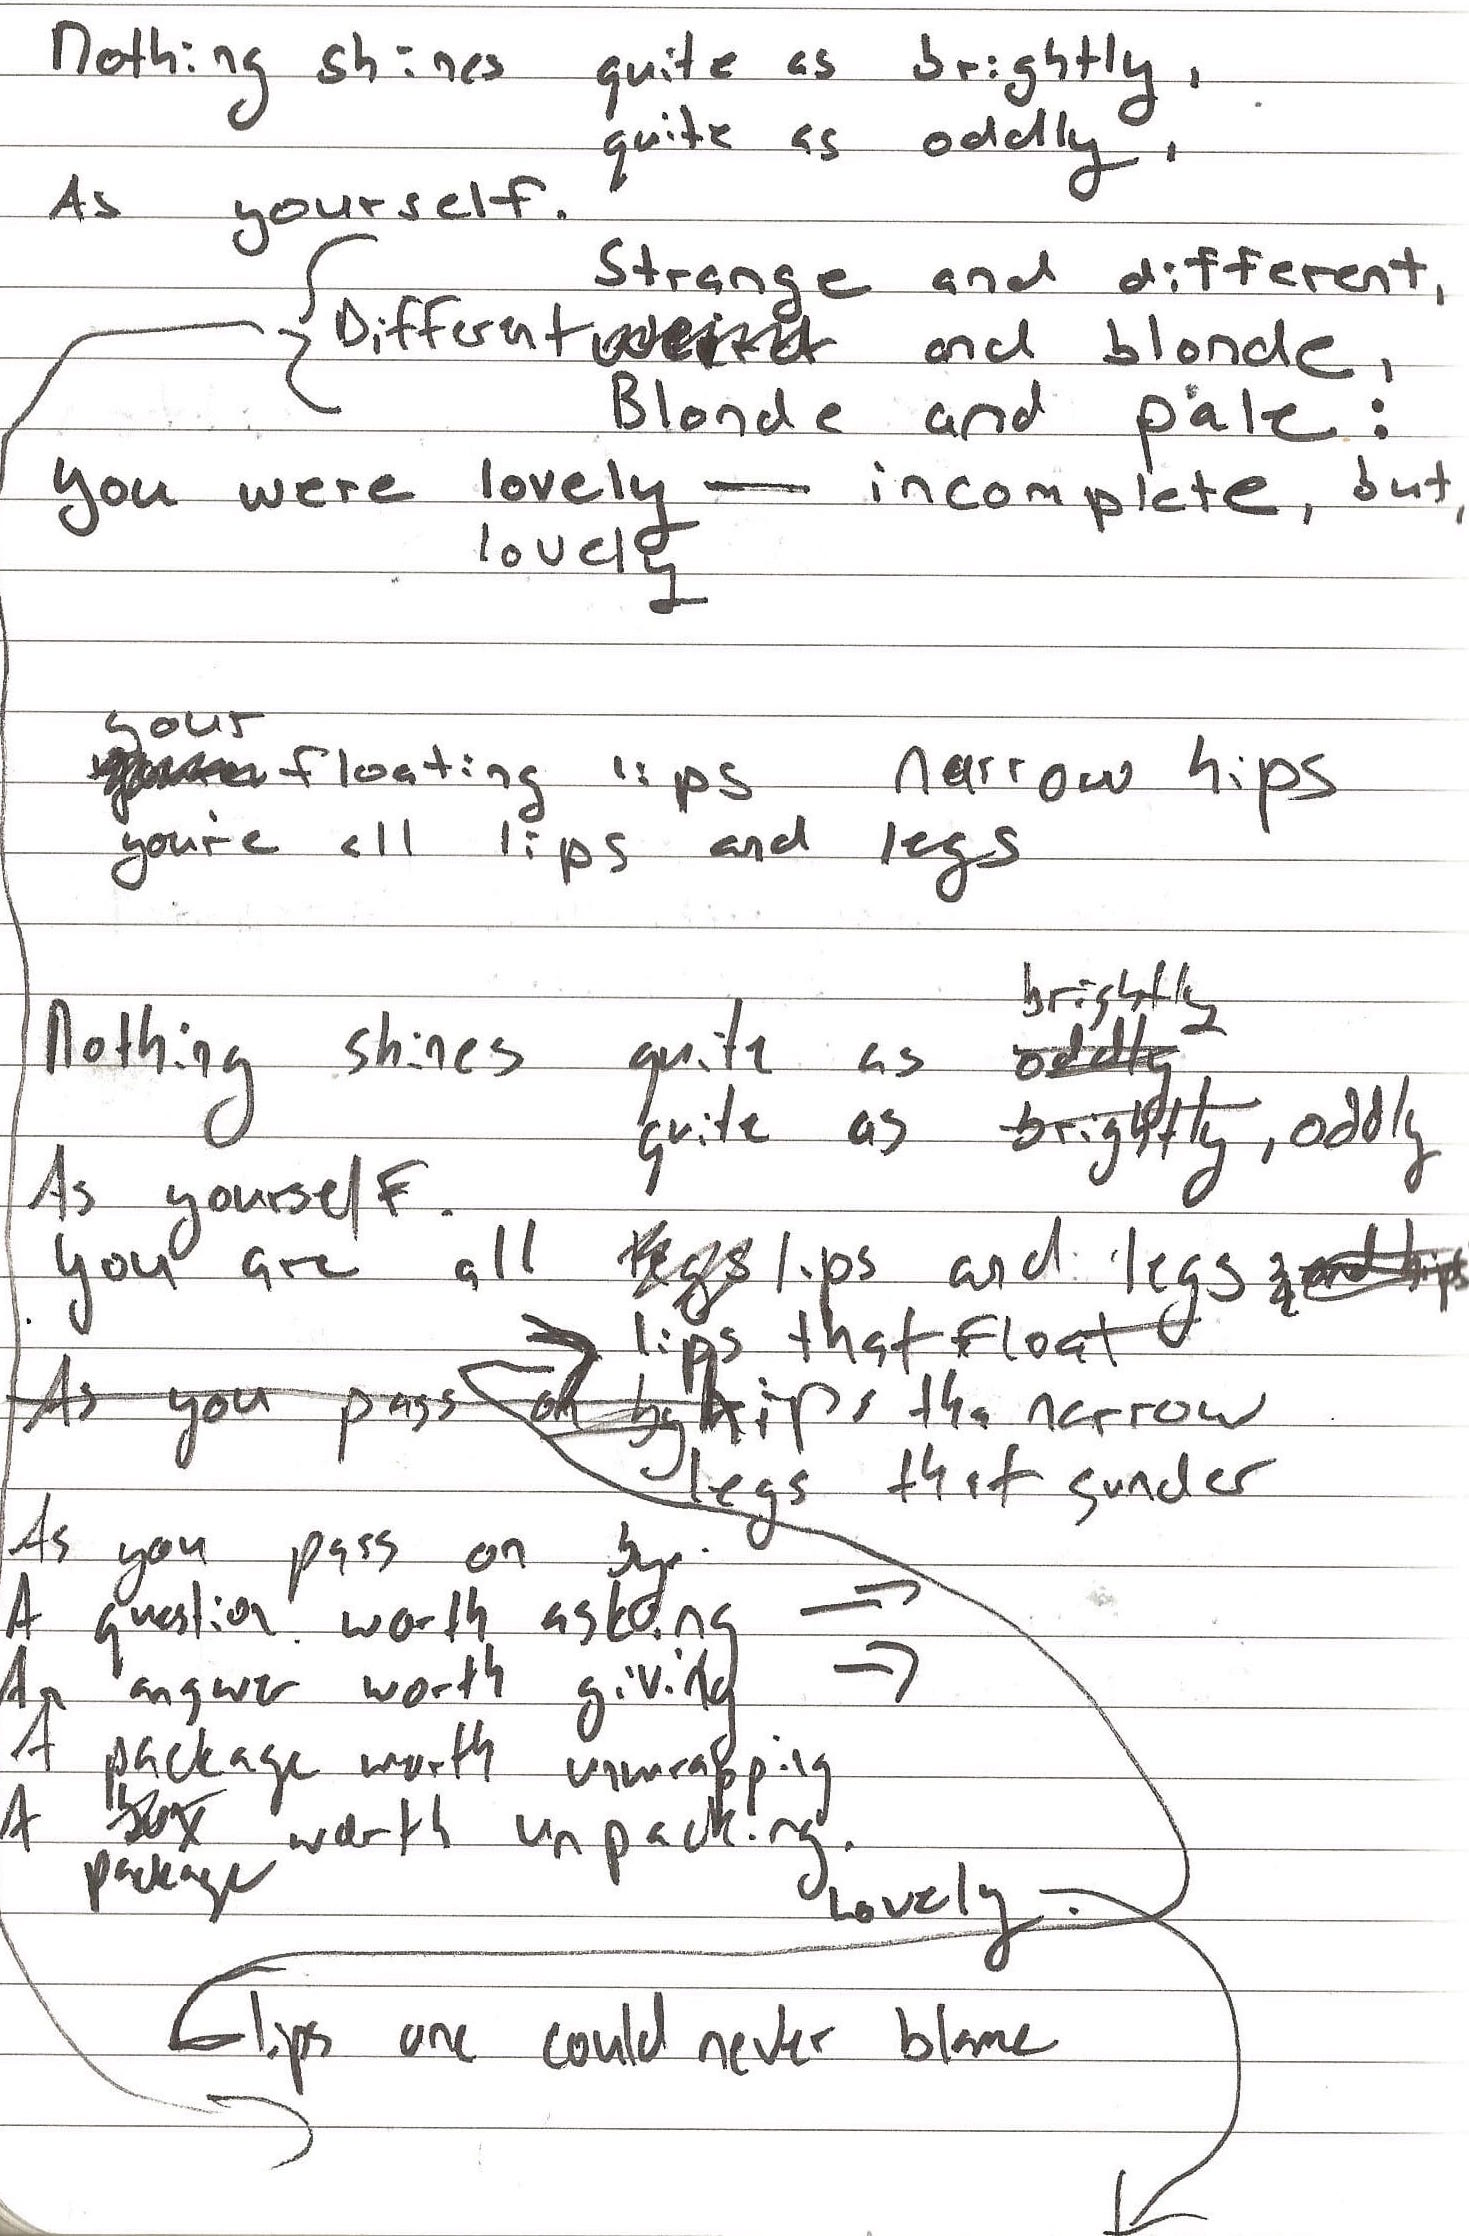 Nothing shines quite as brightly,
quite as oddly,
As yourself.
Strange and different,
Different weird and blonde,
Blonde and pale:
you were lovely — incomplete, but,
lovely
your
floating lips narrow hips
you're all lips and legs
brightly
Nothing shines quite as oddly
quite as brightly, oddly
As yourself.
you are all legs lips and legs and hips
lips that float
As you pass on by hips tha narrow
legs that sunder
As you pass on by.
A question worth asking
An answer worth giving
A package worth unwrapping
A box worth unpacking.
package
Lovely.
lips one could never blame